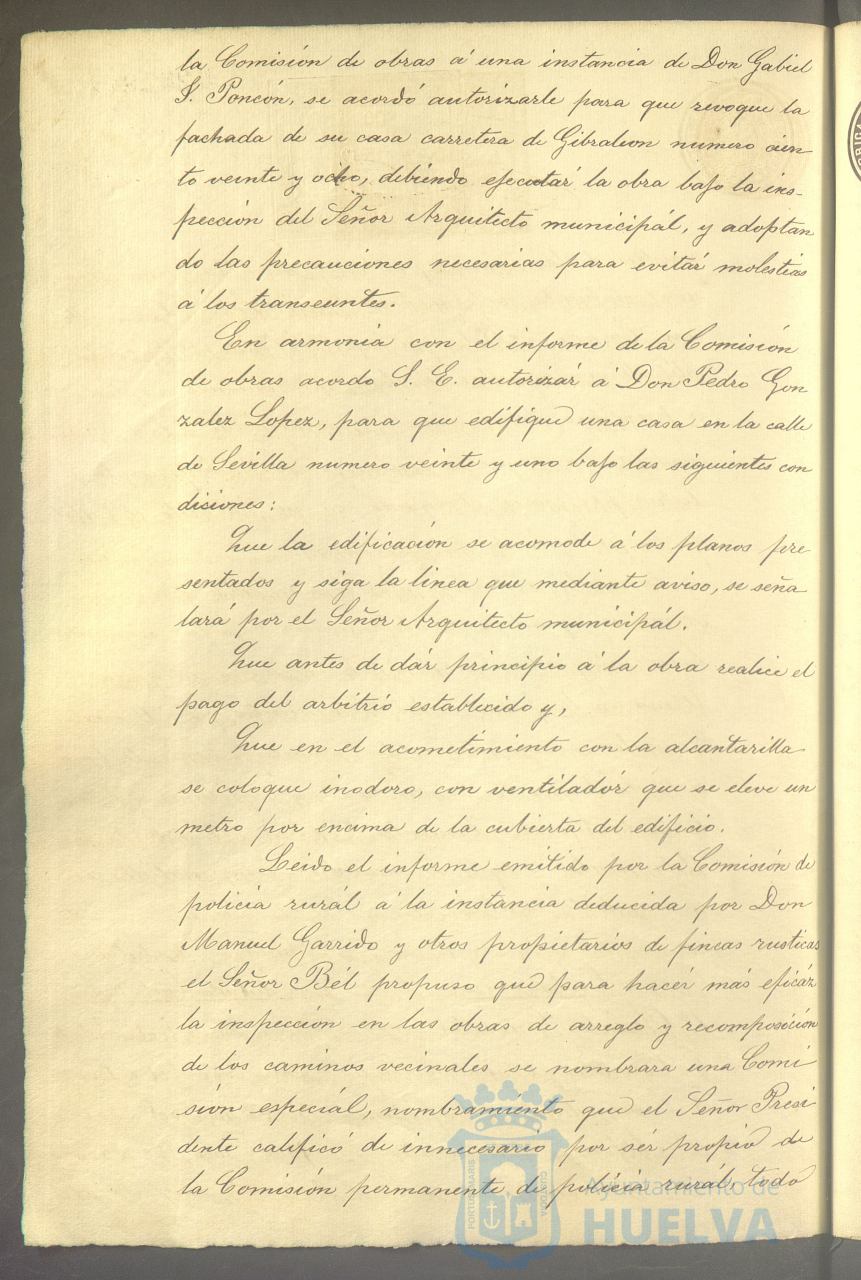 la Comisión de obras á una instancia de Don Gabiel
S. Poncón, se acordó autorizarle para que revoque la
fachada de su casa carretera de Gibraleon numero cien
to veinte y ocho, debiendo ejecutar la obra bajo la ins-
pección del Señor Arquitecto municipál, y adoptan
do las precauciones necesarias para evitár molestias
á los transeuntes.
En armonia con el informe de la Comisión
de obras acordo S. E. autorizár á Don Pedro Gon
zalez Lopez, para que edifique una casa en la calle
de Sevilla numero veinte y uno bajo las siguientes con
disiones:
Que la edificación se acomode á los planos pre
sentados y siga la linea que mediante aviso, se seña
lará por el Señor Arquitecto municipál.
Que antes de dár principio á la obra realice el
pago del arbitrio establecido y,
Que en el acometimiento con la alcantarilla
se coloque inodoro, con ventiladór que se eleve un
metro por encima de la cubierta del edificio.
Leido el informe emitido por la Comisión de
policia rurál á la instancia deducida por Don
Manuel Garrido y otros propietarios de fincas rusticas
el Señor Bél propuso que para hacér más eficáz
la inspección en las obras de arreglo y recomposición
de los caminos vecinales se nombrara una Comi
sión especiál, nombramiento que el Señor Presi
dente calificó de innecesario por sér propio de
la Comisión permanente de policia rurál, todo
PORTUS MARIS
CUSTODIA
Ayuntamiento de
HUELVA